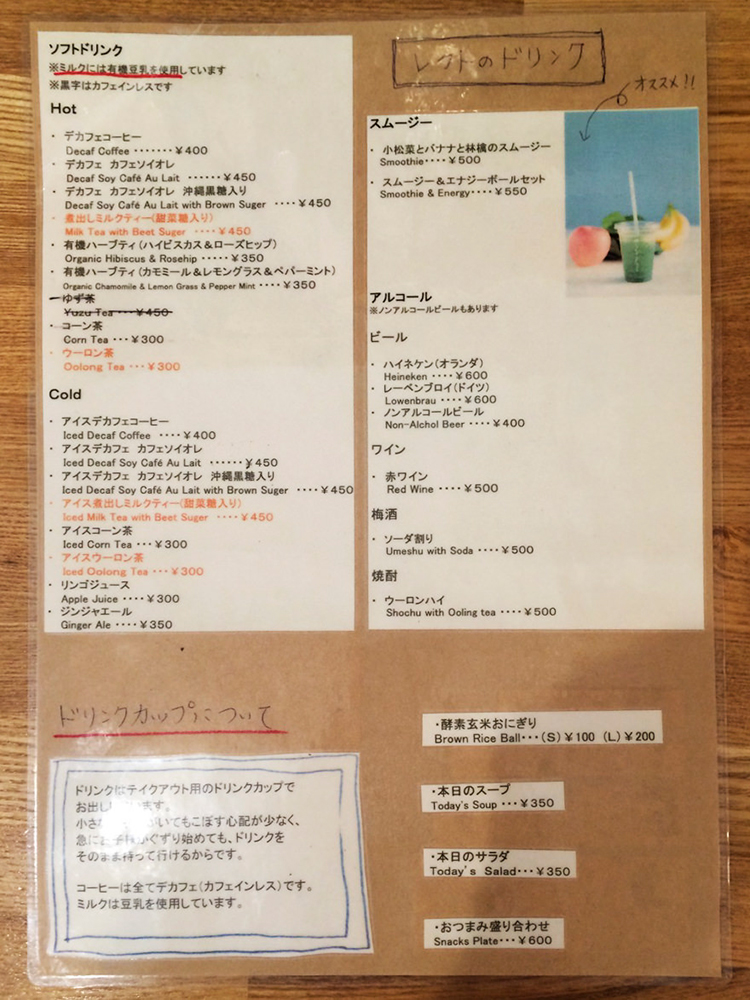 ソフトドリンク
※ミルクには有機豆乳を使用しています
※黒字はカフェインレスです
Hot
・ デカフェコーヒー
Decaf Coffee ・・・・・・・￥400
・ デカフェ カフェソイオレ
Decaf Soy Café Au Lait ・・・・・・￥450
・ デカフェ カフェソイオレ 沖縄黒糖入り
Decaf Soy Café Au Lait with Brown Suger ・・・・￥450
・ 煮出しミルクティー(甜菜糖入り)
Milk Tea with Beet Suger ・・・・￥450
・ 有機ハーブティ(ハイビスカス＆ローズヒップ)
Organic Hibiscus & Rosehip ・・・・・￥350
・ 有機ハーブティ(カモミール＆レモングラス＆ペパーミント)
Organic Chamomile & Lemon Grass & Pepper Mint ・・・・￥350
・ ゆず茶
Yuzu Tea ・・・￥450
・ コーン茶
Corn Tea ・・・￥300
・ ウーロン茶
Oolong Tea ・・・￥300
Cold
・ アイスデカフェコーヒー
Iced Decaf Coffee ・・・・￥400
・ アイスデカフェ カフェソイオレ
Iced Decaf Soy Café Au Lait ・・・・・・￥450
・ アイスデカフェ カフェソイオレ 沖縄黒糖入り
Iced Decaf Soy Café Au Lait with Brown Suger ・・・・￥450
・ アイス煮出しミルクティー(甜菜糖入り)
Iced Milk Tea with Beet Suger ・・・・￥450
・ アイスコーン茶
Iced Corn Tea ・・・￥300
・ アイスウーロン茶
Iced Oolong Tea ・・・￥300
・ リンゴジュース
Apple Juice ・・・・￥300
・ ジンジャエール
Ginger Ale ・・・・￥350
レクトのドリンク
オススメ!!
スムージー
・ 小松菜とバナナと林檎のスムージー
Smoothie・・・・￥500
・ スムージー＆エナジーボールセット
Smoothie & Energy・・・・￥550
アルコール
※ノンアルコールビールもあります
ビール
・ ハイネケン(オランダ)
Heineken ・・・・￥600
・ レーベンブロイ(ドイツ)
Lowenbrau ・・・・￥600
・ ノンアルコールビール
Non-Alchol Beer ・・・・￥400
ワイン
・ 赤ワイン
Red Wine ・・・・￥500
梅酒
・ ソーダ割り
Umeshu with Soda ・・・・￥500
焼酎
・ ウーロンハイ
Shochu with Ooling tea ・・・・￥500
ドリンクカップについて
ドリンクはテイクアウト用のドリンクカップで
お出し います。
小さ いてもこぼす心配が少なく、
急に ぐずり始めても、ドリンクを
そのまま持って行けるからです。
コーヒーは全てデカフェ(カフェインレス)です。
ミルクは豆乳を使用しています。
・酵素玄米おにぎり
Brown Rice Ball・・・(S)￥100 (L)￥200
・本日のスープ
Today's Soup ・・・￥350
・本日のサラダ
Today's Salad・・・￥350
・おつまみ盛り合わせ
Snacks Plate・・・￥600